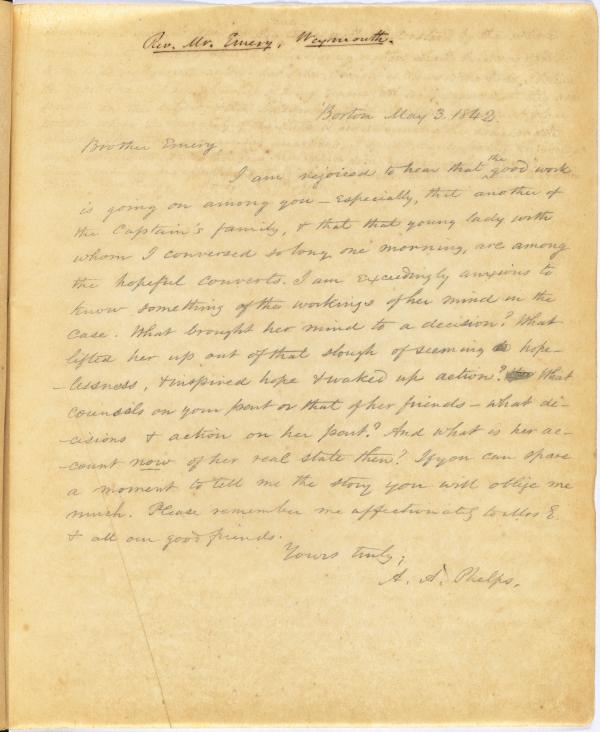 Rev. Mr. Emery, Weymouth.
Boston May 3. 1842.
Brother Emery,
I am rejoiced to hear that the good work
is going on among you – especially, that another of
the Captain's family, & that that young lady with
whom I conversed so long one morning, are among
the hopeful converts. I am exceedingly anxious to
know something of the workings of her mind in the
case. What brought her mind to a decision? What
lifted her up out of that slough of seeming hope-
-lessness, & inspired hope & waked up action? What
counsels on your part or that of her friends – what de-
-cisions & action on her part? And what is her ac-
-count now of her real state then? If you can spare
a moment to tell me the story you will oblige me
much. Please remember me affectionately to Mrs E.
& all our good friends.
Yours truly,
A. A. Phelps.